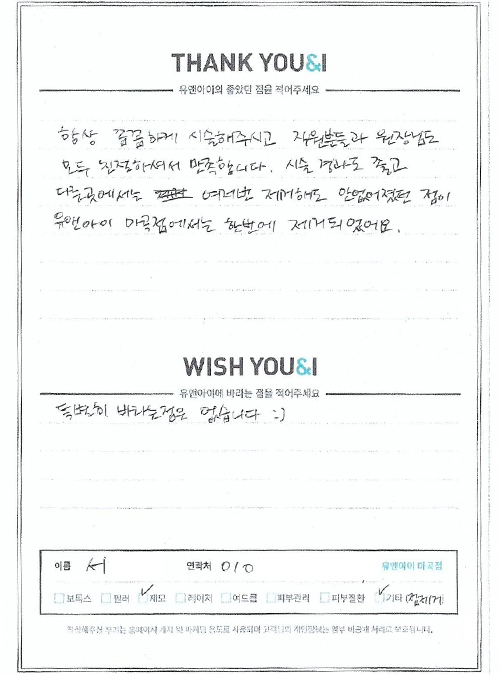 THANK YOU&I
유앤아이의 좋았던 점을 적어주세요
항상 꼼꼼하게 시술해주시고 직원분들과 원장님도
모두 친절하셔서 만족합니다. 시술 경과도 좋고
다른곳에서는 여러번 제거해도 안없어졌던 점이
유앤아이 마곡점에서는 한번에 제거되었어요.
WISH YOU&I
유앤아이에 바라는 점을 적어주세요
특별히 바라는점은 없습니다 :)
이름 서 연락처 010 유앤아이 마곡점
보톡스 필러 제모 레이저 여드름 피부관리 피부질환 기타 (점제거)
작성해주신 후기는 홈페이지 게재 및 마케팅 용도로 사용되며 고객님의 개인정보는 별도 비공개 처리로 보호됩니다.